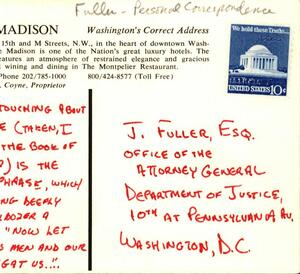 Fuller - Personal Correspondence
MADISON
Washington's Correct Address
15th and M Streets, N.W., in the heart of downtown Wash-
e Madison is one of the Nation's great luxury hotels. The
eatures an atmosphere of restrained elegance and gracious
t wining and dining in The Montpelier Restaurant.
Phone 202/785-1000
800/424-8577 (Toll Free)
. Coyne, Proprietor
We hold these Truths...
UNITED STATES 10c
TOUCHING ABOUT
E (TAKEN, I
THE BOOK OF
?) IS THE
PHRASE, WHICH
NG DEEPLY
LDOZER A
"NOW LET
S MEN AND OUR
GAT US..".
J. FULLER, ESQ.
OFFICE OF THE
ATTORNEY GENERAL
DEPARTMENT OF JUSTICE,
10TH AT PENNSYLVANIA AV.
WASHINGTON, D.C.